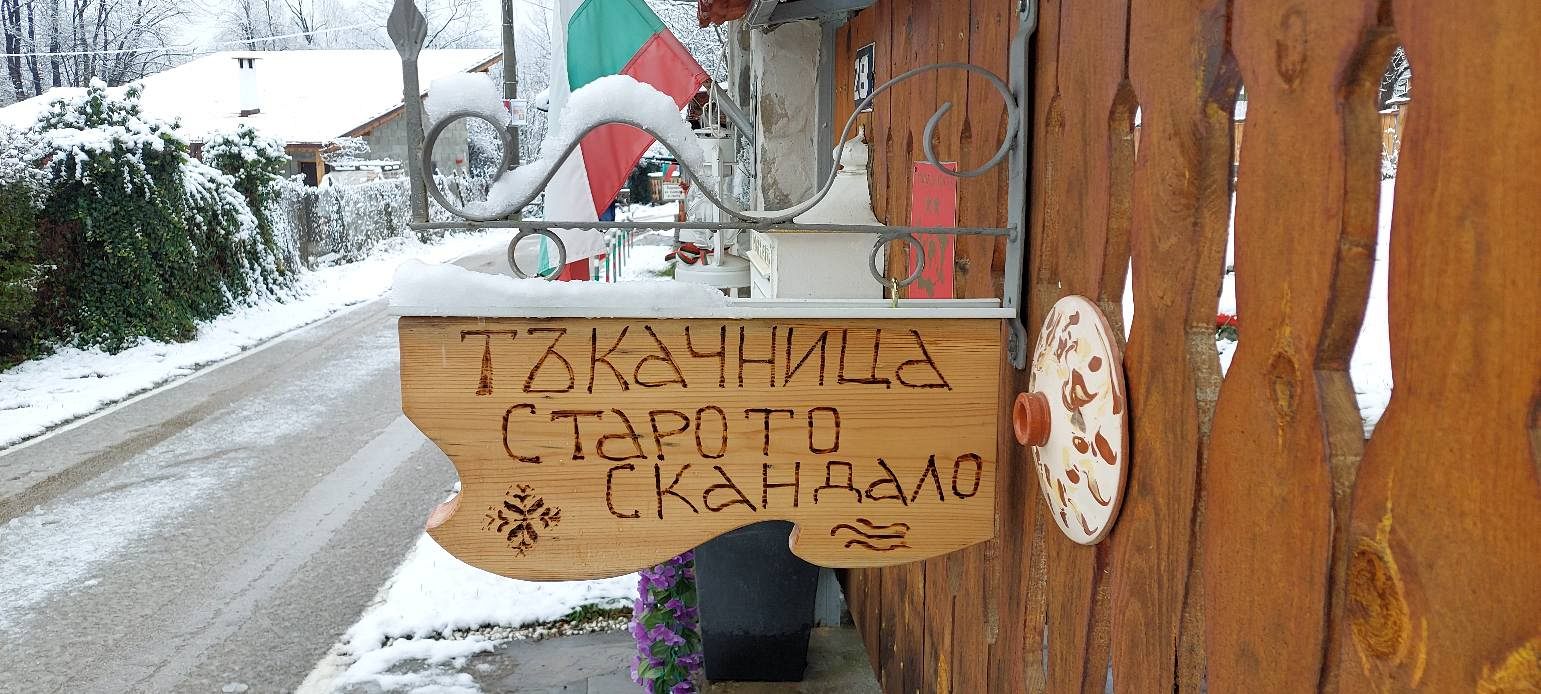 28
ТЪКАЧНИЦА
СТАРОТО
СКАНДАЛО